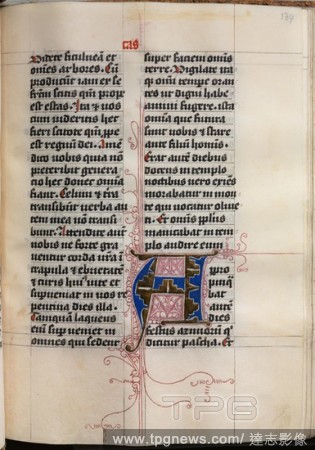 cas
Videte ficulneā et
om̄es arbores. Cū
producūt iam ex se
frūm scitis qm̄ prope
est estas. Ita & vos
cum videritis hec
fieri scitote qm̄ ꝓpe
est regnū dei. Amē
dico vobis quia nō
preteribit genera
cio hec donec om̄ia
fiant. Celum & tra
transibūt verba au
tem mea nō transi
bunt. Attendite aūt
vobis ne forte gra
ventur corda vrā ī
crapula & ebrietate
& curis huiꝰ vite et
supveniat in vos re
pentina dies illa.
Tamquā laqueus
enī supveniet in
omnes qui sedent
super faciem om̄is
terre. Vigilate ita
qꝫ om̄i tempore oran
tes ut digni habe
amini fugere. ista
omnia que futura
sunt vobis & stare
ante filiū homīs.
Erat autē diebus
docens in templo
noctibus vero exiēs
morabatur in mon
te qui vocatur olive
ti. Et om̄is pplus
manicabat in tem
plo audire eum.
Appro
pinq
bat
autē
dies
festus azimorū q̄
dicitur pascha. Et
TPG
www.tpgnews.com/ 達志影像